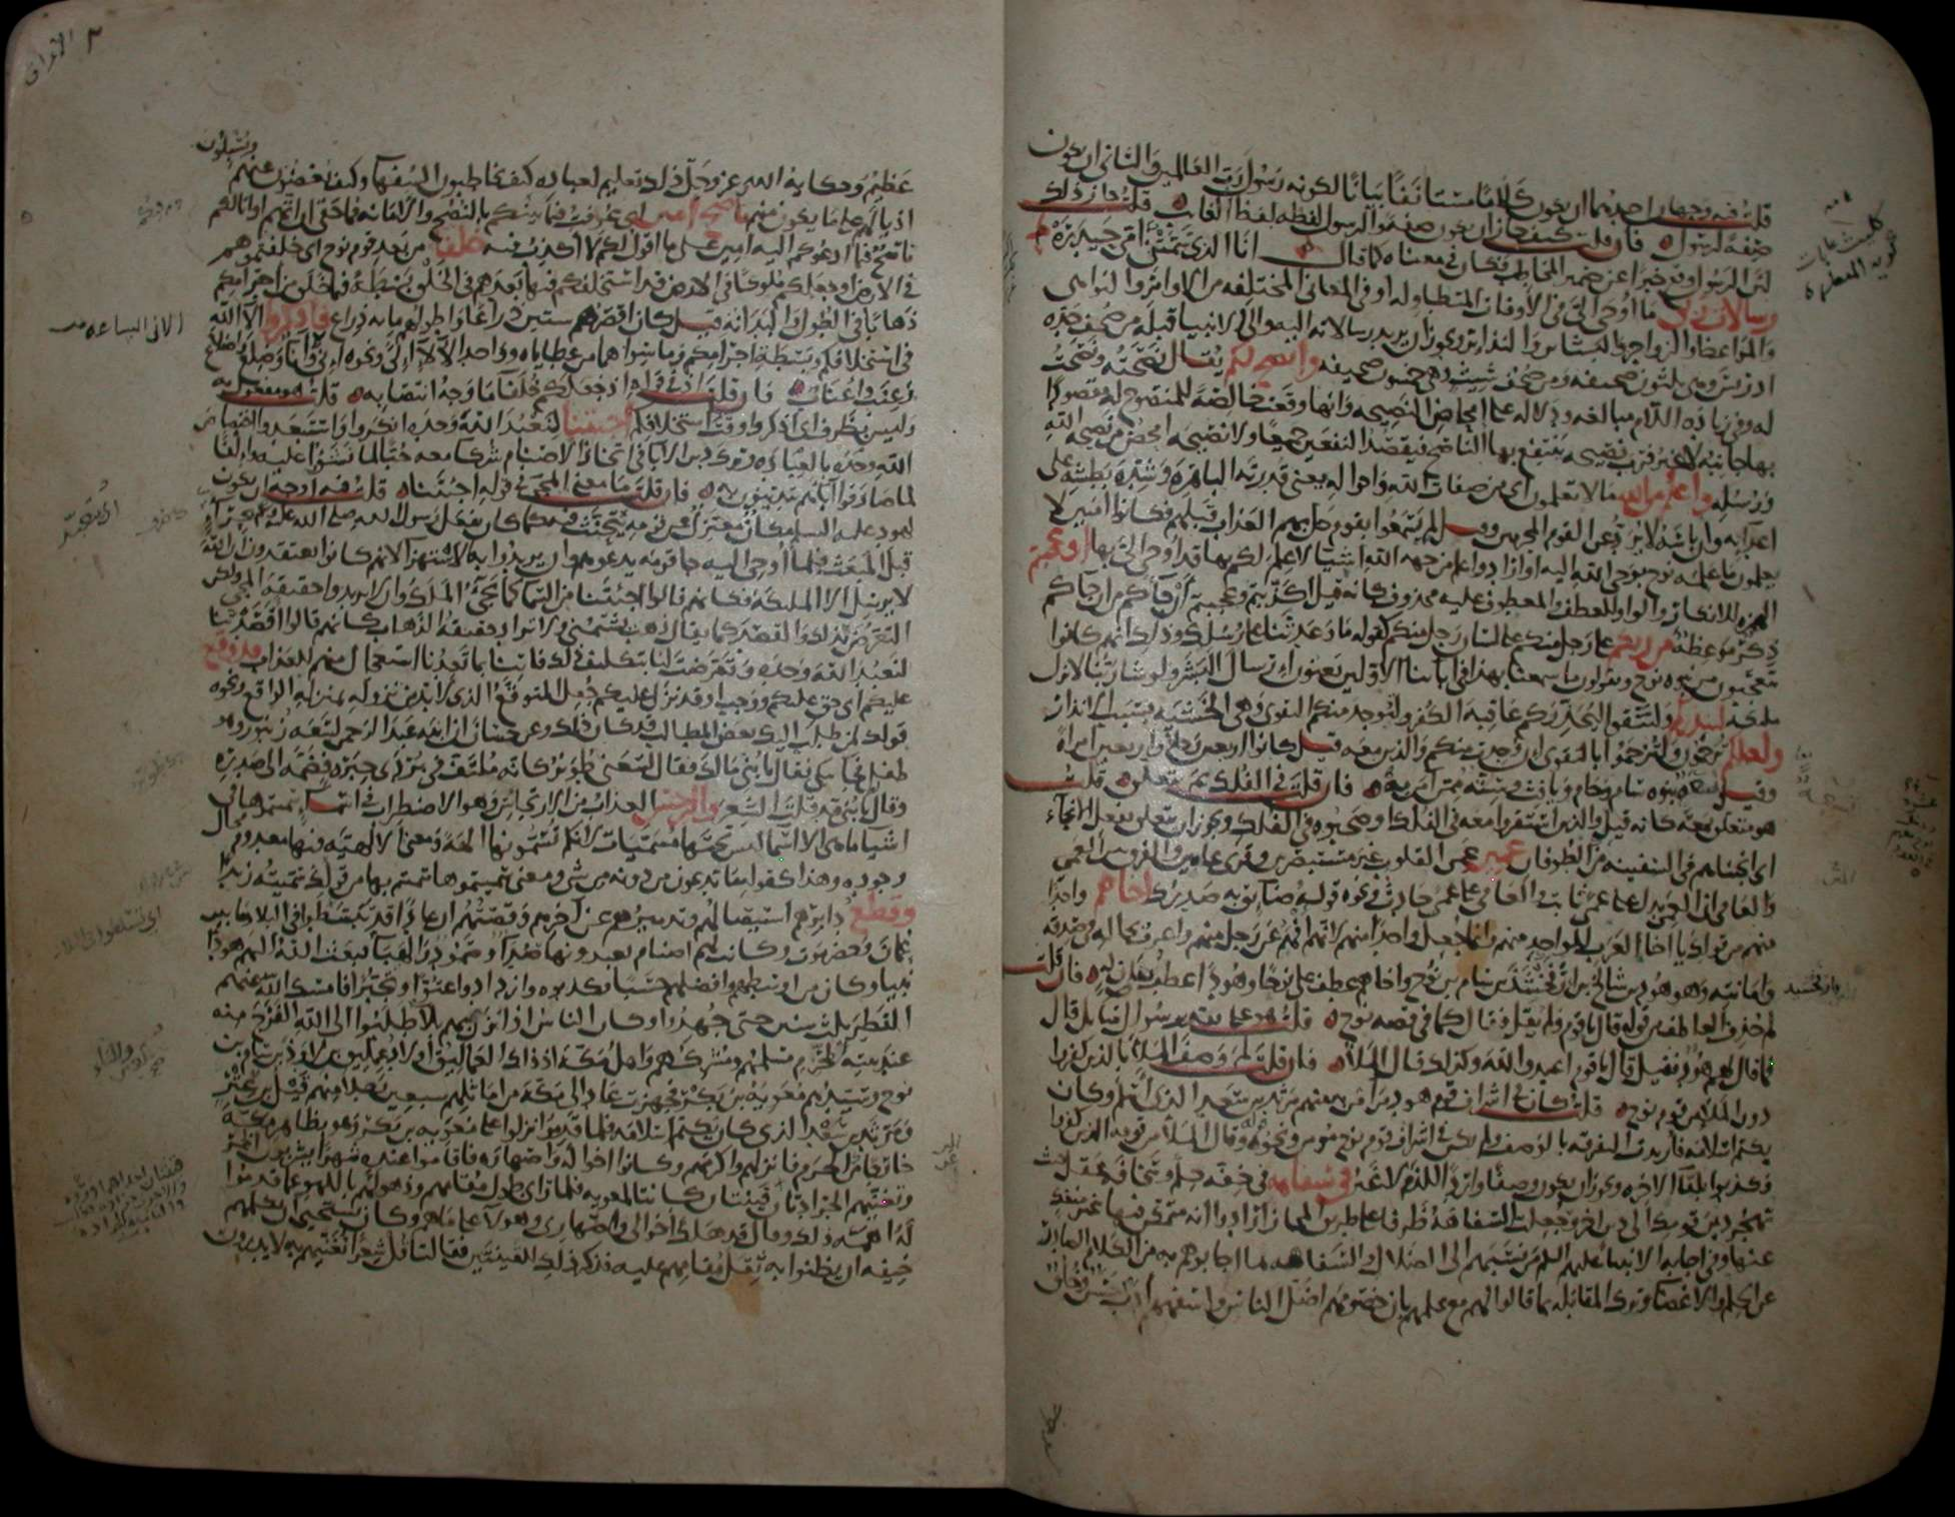 قلت فيه وجهان احدهما ان يكون كلاما مستانفا بيانا لكونه رسول رب العالمين والثانى ان يكون
صفة لرسول فان قلت كيف جاز ان يكون صفة والرسول لفظه لفظ الغايب قلت جاز ذلك
لان الرسول وقع خبرا عن ضمير المخاطب فكان معناه كما قال انا الذى سمتنى امى حيدره
رسالات ربى ما اوحى الى فى الاوقات المتطاوله او فى المعانى المختلفه من الاوامر والنواهى
والمواعظ والزواجر والبشاير والنذاير ويجوز ان يريد رسالاته اليه والى الانبيا قبله من صحف جده
ادريس وهى ثلثون صحيفه ومن صحف شيث وهى خمسون صحيفه وانصح لكم يقال نصحته ونصحت
له وفى زياده اللام مبالغه ودلاله على امحاض النصيحه وانها وقعت خالصة للمنصوح له مقصودا
بها جانبه لا غير فرب نصيحه ينتفع بها الناصح فيقصد النفعين جميعا ولا نصيحه امحض من نصيحه الله
ورسله واعلم من الله ما لا تعلمون اى من صفات الله واحواله يعنى قدرته الباهره وشده بطشه على
اعدايه وان باسه لا يرد عن القوم المجرمين وقيل لم يسمعوا بقوم حل بهم العذاب قبلهم فكانوا امنين لا
يعلمون ما علمه نوح بوحى الله اليه او اراد واعلم من جهه الله اشيا لا علم لكم بها قد اوحى الى بها اوعجبتم
الهمزه للانكار والواو للعطف والمعطوف عليه محذوف كانه قيل اكذبتم وعجبتم ان جاكم من ان جاكم
ذكر موعظه من ربكم على رجل منكم على لسان رجل منكم كقوله ما وعدتنا على رسلك وذلك انهم كانوا
يتعجبون من نبوه نوح ويقولون ما سمعنا بهذا فى ابائنا الاولين يعنون ارسال البشر ولو شا ربنا لانزل
ملائكه لينذركم ولتتقوا ليحذركم عاقبه الكفر ولتوجد منكم التقوى وهى الخشيه بسبب الانذار
ولعلكم ترحمون ولترحموا بالتقوى ان وجدت منكم والذين معه قيل كانوا اربعين رجلا واربعين امراة
وقيل تسعه بنوه سام وحام ويافث وسته ممن امن به فان قلت فى الفلك بم يتعلق قلت
هو متعلق بمعه كانه قيل والذين استقروا معه فى الفلك وصحبوه فى الفلك ويجوز ان يتعلق بفعل الانجاء
اى انجيناهم فى السفينه من الطوفان عمين عمى القلوب غير مستبصرين وقرى عامين والفرق بين العمى
والعامى ان العمى يدل على عمى ثابت والعامى على عمى حادث ونحوه قوله وضايق به صدرك اخاهم واحدا
منهم من قولك يا اخا العرب للواحد منهم وانما جعل واحدا منهم لانهم افهم عن رجل منهم واعرف بحاله فى صدقه
وامانته وهو هود بن شالخ بن ارفخشذ بن سام بن نوح واخاهم عطف على نوحا وهودا عطف بيان له فان قلت
لم حذف العاطف من قوله قال يا قوم ولم يقل وقال كما فى قصه نوح قلت هو على تقدير سوال سايل قال
فما قال لهم هود فقيل قال يا قوم اعبدوا الله وكذلك قال الملا فان قلت لم وصف الملا بالذين كفروا
دون الملا من قوم نوح قلت كان فى اشراف قوم هود من امن به منهم مرثد بن سعد الذى اسلم وكان
يكتم اسلامه فاريدت التفرقه بالوصف ولم يكن فى اشراف قوم نوح مومن ونحوه وقال الملا من قومه الذين كفروا
وكذبوا بلقا الاخره ويجوز ان يكون وصفا واردا للذم لا غير فى سفاهه فى خفه حلم وسخافه عقل حيث
تهجر دين قومك الى دين اخر وجعلت السفاهه ظرفا على طريق المجاز ارادوا انه متمكن فيها غير منفك
عنها وفى اجابه الانبيا عليهم السلم من نسبهم الى الضلال والسفاهه بما اجابوهم به من الكلام الصادر
عن الحلم والاغضا وترك المقابله بما قالوا لهم مع علمهم بان خصومهم اضل الناس واسفههم ادب حسن وخلق
عظيم وحكايه الله عز وجل ذلك تعليم لعباده كيف يخاطبون السفها وكيف يغضون عنهم
ويسبلون
اذيالهم على ما يكون منهم ناصح امين اى عرفت فيما بينكم بالنصح والامانه فما حقى ان اتهم او انا لكم
ناصح فيما ادعوكم اليه امين على ما اقول لكم لا اكذب فيه خلفا من بعد قوم نوح اى خلفتموهم
فى الارض او جعلكم ملوكا فى الارض قد استخلفكم فيها بعدهم فى الخلق بسطة فيما خلق من اجرامكم
ذهابا فى الطول والبدانه قيل كان اقصرهم ستين ذراعا واطولهم مايه ذراع فاذكروا الا الله
فى استخلافكم وبسطة اجرامكم وما سواهما من عطاياه وواحد الالا الى ونحوه انى وانا وضلع واضلاع
وعنب واعناب فان قلت اذ فى قوله اذ جعلكم خلفا ما وجه انتصابه قلت هو مفعول به
وليس بظرف اى اذكروا وقت استخلافكم اجئتنا لنعبد الله وحده انكروا واستبعدوا اختصاص
الله وحده بالعباده وترك دين الابا فى اتخاذ الاصنام شركا معه حبا لما نشوا عليه والفا
لما صادفوا آباهم يتدينون به فان قلت ما معنى المجى فى قوله اجئتنا قلت فيه اوجه ان يكون
لهود عليه السلم مكان معتزل عن قومه يتحنث فيه كما كان يفعل رسول الله صلى الله عليه وسلم بحرا
قبل المبعث فلما اوحى اليه جا قومه يدعوهم وان يريدوا به الاستهزا لانهم كانوا يعتقدون ان الله
لا يرسل الا الملائكه فكانهم قالوا اجئتنا من السما كما يجى الملك وان لا يريدوا حقيقه المجى ولكن
التعرض لذلك والقصد كما يقال ذهب يشتمنى ولا يراد حقيقه الذهاب كانهم قالوا اقصدتنا
لنعبد الله وحده وتعرضت لنا بتكليف ذلك فاتنا بما تعدنا استعجال منهم للعذاب قد وقع
عليكم اى حق عليكم ووجب او قد نزل عليكم جعل المتوقع الذى لابد من نزوله بمنزله الواقع ونحوه
قولك لمن طلب اليك بعض المطالب قد كان ذلك وعن حسان ان ابنه عبد الرحمن لسعه زنبور وهو
طفل فجا يبكى فقال يا بنى مالك فقال لسعنى طوير كانه ملتف فى بردى حبره فضمه الى صدره
وقال يا بنى قد قلت الشعر والرجس العذاب من الارتجاس وهو الاضطراب فى اسما سميتموها فى
اشيا ما هى الا اسما ليس تحتها مسميات لانكم تسمونها الهة ومعنى الالهيه فيها معدوم محال
وجوده وهذا كقوله ما تدعون من دونه من شى ومعنى سميتموها سميتم بها من قولك سميته زيدا
وقطع دابرهم استيصالهم وتدميرهم عن اخرهم وقصتهم ان عادا قد تبسطوا فى البلاد ما بين
عمان وحضرموت وكانت لهم اصنام يعبدونها صدا وصمود والهبا فبعث الله اليهم هودا
نبيا وكان من اوسطهم وافضلهم حسبا فكذبوه وازدادوا عتوا وتجبرا فامسك الله عنهم
القطر ثلث سنين حتى جهدوا وكان الناس اذا نزل بهم بلا طلبوا الى الله الفرج منه
عند بيته المحرم مسلمهم ومشركهم واهل مكه اذ ذاك العماليق اولاد عمليق بن لاوذ بن سام بن
نوح وسيدهم معويه بن بكر فجهزت عاد الى مكه من اماثلهم سبعين رجلا منهم قيل بن عنز
ومرثد بن سعد الذى كان يكتم اسلامه فلما قدموا نزلوا على معويه بن بكر وهو بظاهر مكه
خارجا من الحرم فانزلهم واكرمهم وكانوا اخواله واصهاره فاقاموا عنده شهرا يشربون الخمر
وتغنيهم الجرادتان قينتان كانتا لمعويه فلما راى طول مقامهم وذهولهم باللهو عما قدموا
له اهمه ذلك وقال قد هلك اخوالى واصهارى وهولا على ما هم وكان يستحيى ان يكلمهم
خيفه ان يظنوا به ثقل مقامهم عليه فذكر ذلك للقينتين فقالتا قل شعرا نغنيهم به لا يدرون